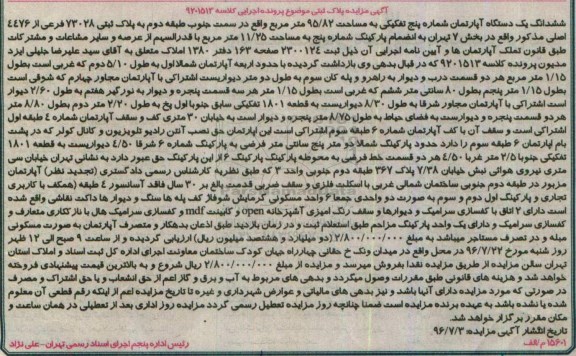 آگهی مزایده پلاک ثبتی موضوع پرونده اجرایی کلاسه ۹۲۰۱۵۱۳
ششدانگ یک دستگاه آپارتمان شماره پنج تفکیکی به مساحت ۹۵/۸۲ متر مربع واقع در سمت جنوب طبقه دوم به پلاک ثبتی ۷۳۰۲۸ فرعی از ۴۴۷۶
اصلی مذکور واقع در بخش ۷ تهران به انضمام پارکینگ شماره پنج به مساحت ۱۱/۲۵ متر مربع با قدرالسهم از عرصه و سایر مشاعات و مشترکات
طبق قانون تملک آپارتمان ها و آیین نامه اجرایی آن ذیل ثبت ۲۳۰۰۱۲۴ صفحه ۱۶۳ دفتر ۱۳۸۰ املاک متعلق به آقای سید علیرضا جلیلی ایزد
مدیون پرونده کلاسه ۹۲۰۱۵۱۳ که در قبال بدهی وی بازداشت گردیده با حدود اربعه آپارتمان شمالا اول به طول ۵/۱۰ دوم که غربی است بطول
۱/۱۵ متر مربع هر دو قسمت درب و دیوار به راهرو و پله کان سوم به طول دو متر دیواریست اشتراکی با آپارتمان مجاور چهارم که شرقی است
بطول ۱/۱۵ متر پنجم بطول ۸۰ سانتی متر ششم که غربی است بطول ۱/۱۵ متر هر سه قسمت پنجره و دیوار به نورگیر هفتم به طول ۲/۶۰ دیوار
است اشتراکی با آپارتمان مجاور شرقا به طول ۸/۳۰ دیواریست به قطعه ۱۸۰۱ تفکیکی سابق جنوبا اول پخ به طول ۲/۲۰ متر دوم بطول ۸/۸۰ متر
هر دو قسمت پنجره و دیواریست به فضای حیاط به طول ۸/۷۵ متر پنجره و دیوار است به خیابان ۳۰ متری کف و سقف آپارتمان شماره ۴ طبقه اول
اشتراکی است و سقف آن با کف آپارتمان شماره ۶ طبقه سوم اشتراکی است این آپارتمان حق نصب آنتن رادیو تلویزیون و کانال کولر که در پشت
بام آپارتمان ۶ طبقه سوم را دارد حدود پارکینگ شمالا دو متر پنج سانتی متر فرضی به پارکینگ شماره ۶ شرقا ۴/۵۰ دیواریست به قطعه ۱۸۰۱
تفکیکی جنوبا ۲/۵ متر غربا ۴/۵۰ هر دو قسمت خط فرضی به محوطه پارکینگ پارکینگ ۶ از این پارکینگ حق عبور دارد به نشانی تهران خیابان سی
متری نیروی هوائی نبش خیابان ۷/۳۸ پلاک ۳۶۷ طبقه دوم جنوبی واحد ۳ که طبق نظریه کارشناس رسمی دادگستری (تجدید نظر) آپارتمان
مزبور در طبقه دوم جنوبی ساختمان شمالی غربی با اسکلت فلزی و سقف ضربی قدمت بالغ بر ۳۰ سال فاقد آسانسور ۴ طبقه (همکف با کاربری
تجاری و پارکینگ اول دوم و سوم به صورت دو واحدی جمعا ۶ واحد مسکونی گرمایش شوفاژ کف پله ها سنگ و دیوار ها داکت نقاشی واقع شده
است دارای ۲ اتاق با کفسازی سرامیک و دیوارها و سقف رنگ آمیزی آشپزخانه open و کابینت mdf و کفسازی سرامیک هال با نازکاری متعارف و
کفسازی سرامیک و دارای یک واحد پارکینگ مزاحم طبق استعلام ثبت و در زمان بازدید طبق اذعان بدهکار و متصرف آپارتمان به صورت مسکونی
مبله و در تصرف مستاجر میباشد به مبلغ ۲/۸۰۰/۰۰۰/۰۰۰ (دو میلیارد و هشتصد میلیون ریال) ارزیابی گردیده و از ساعت ۹ صبح الی ۱۲ ظهر
روز شنبه مورخ ۹۶/۷/۲۲ در محل واقع در میدان ونک خ حقانی چهارراه جهان کودک ساختمان معاونت اجرای اداره کل ثبت اسناد و املاک استان
تهران سالن مزایده از طریق مزایده نقدا بفروش میرسد و مزایده از مبلغ ۲/۸۰۰/۰۰۰/۰۰۰ ریال شروع و به بالاترین قیمت پیشنهادی فروخته
خواهد شد و هزینه های قانونی طبق مقررات وصول میگردد و بدهی های مربوط به آب و برق و گاز اعم از حق انشعاب و یا حق اشتراک و مصرف
در صورتی که مورد مزایده دارای آنها باشد و نیز بدهی های مالیاتی و عوارض شهرداری و غیره تا تاریخ مزایده اعم از اینکه رقم قطعی آن معلوم
شده یا نشده باشد به عهده برنده مزایده است ضمنا چنانچه روز مزایده تعطیل رسمی گردد مزایده روز اداری بعد از تعطیلی در همان ساعت و
مکان مقرر برگزار خواهد شد.
تاریخ انتشار آگهی مزایده: ۹۶/۷/۳
۱۵۶۰۱ م/الف
رئیس اداره پنجم اجرای اسناد رسمی تهران- علی نژاد